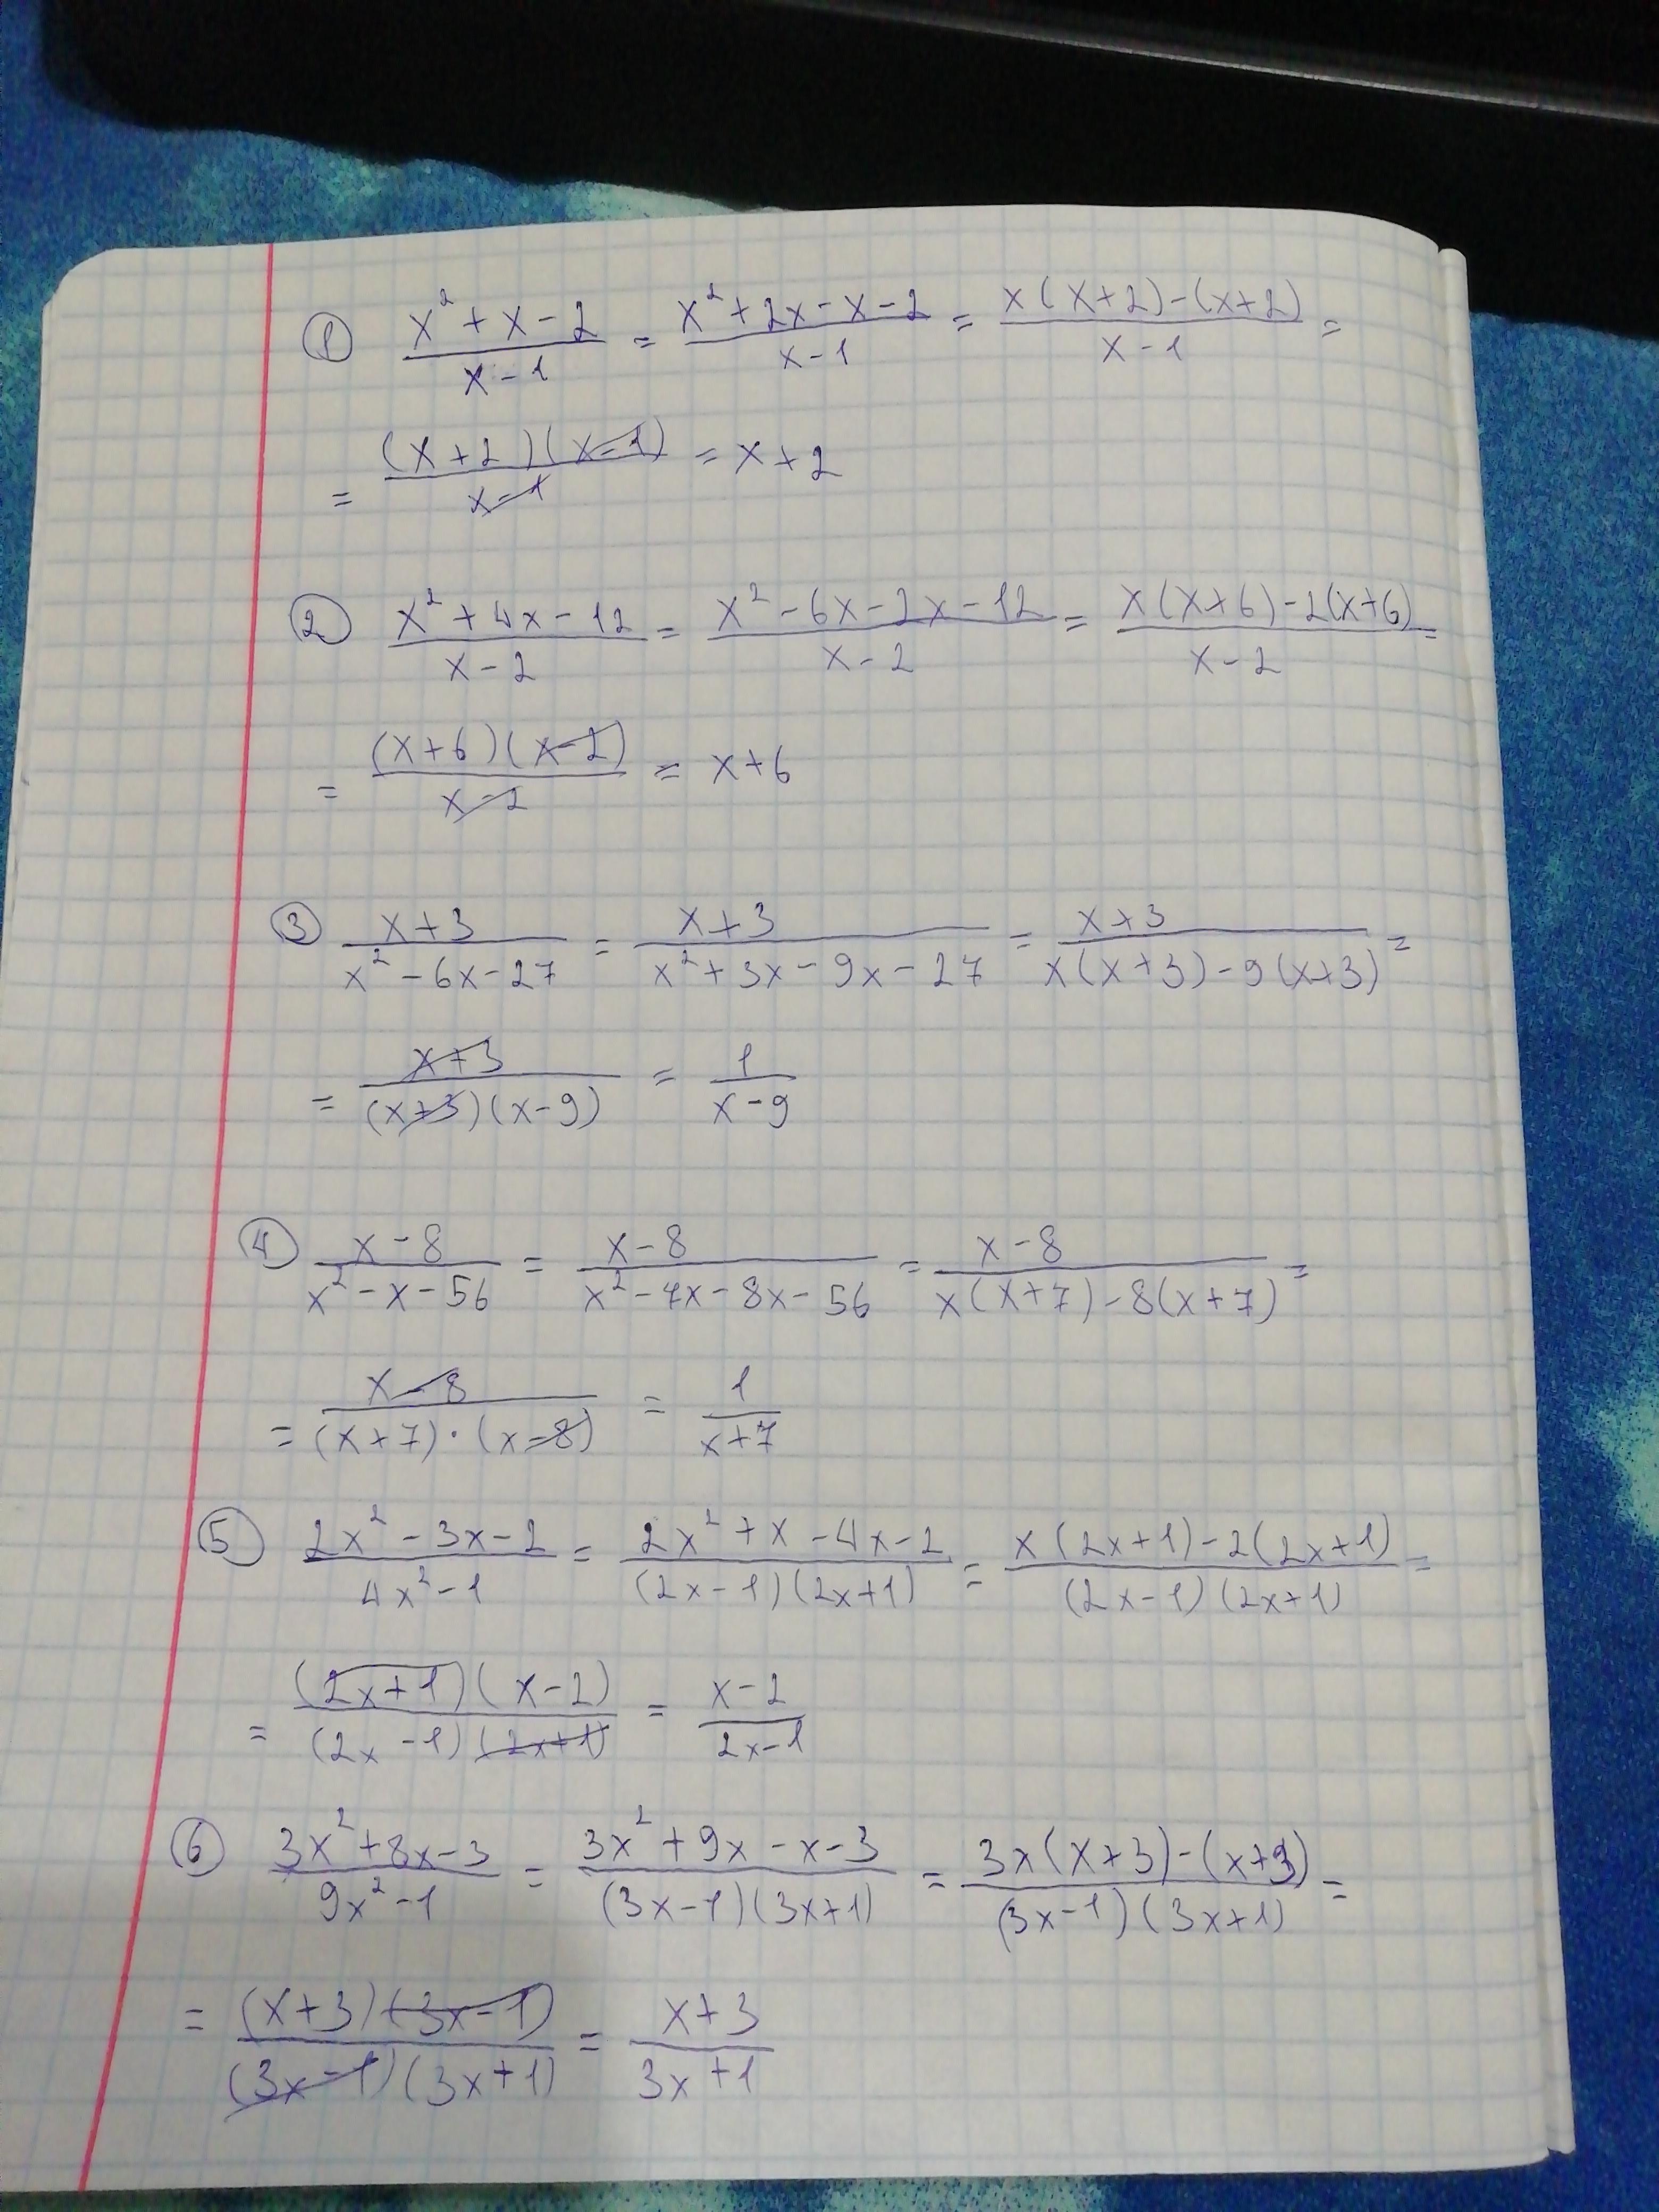 ① (x² + x - 2)/(x - 1) = (x² + 2x - x - 2)/(x - 1) = (x(x+2) - (x+2))/(x - 1) =
= ((x+2)(x-1))/(x-1) = x + 2
② (x² + 4x - 12)/(x - 2) = (x² - 6x - 2x - 12)/(x - 2) = (x(x+6) - 2(x+6))/(x - 2) =
= ((x+6)(x-2))/(x-2) = x + 6
③ (x+3)/(x² - 6x - 27) = (x+3)/(x² + 3x - 9x - 27) = (x+3)/(x(x+3) - 9(x+3)) =
= (x+3)/((x+3)(x-9)) = 1/(x-9)
④ (x-8)/(x² - x - 56) = (x-8)/(x² - 7x - 8x - 56) = (x-8)/(x(x+7) - 8(x+7)) =
= (x-8)/((x+7)·(x-8)) = 1/(x+7)
⑤ (2x² - 3x - 2)/(4x² - 1) = (2x² + x - 4x - 2)/((2x-1)(2x+1)) = (x(2x+1) - 2(2x+1))/((2x-1)(2x+1)) =
= ((2x+1)(x-2))/((2x-1)(2x+1)) = (x-2)/(2x-1)
⑥ (3x² + 8x - 3)/(9x² - 1) = (3x² + 9x - x - 3)/((3x-1)(3x+1)) = (3x(x+3) - (x+3))/((3x-1)(3x+1)) =
= ((x+3)(3x-1))/((3x-1)(3x+1)) = (x+3)/(3x+1)